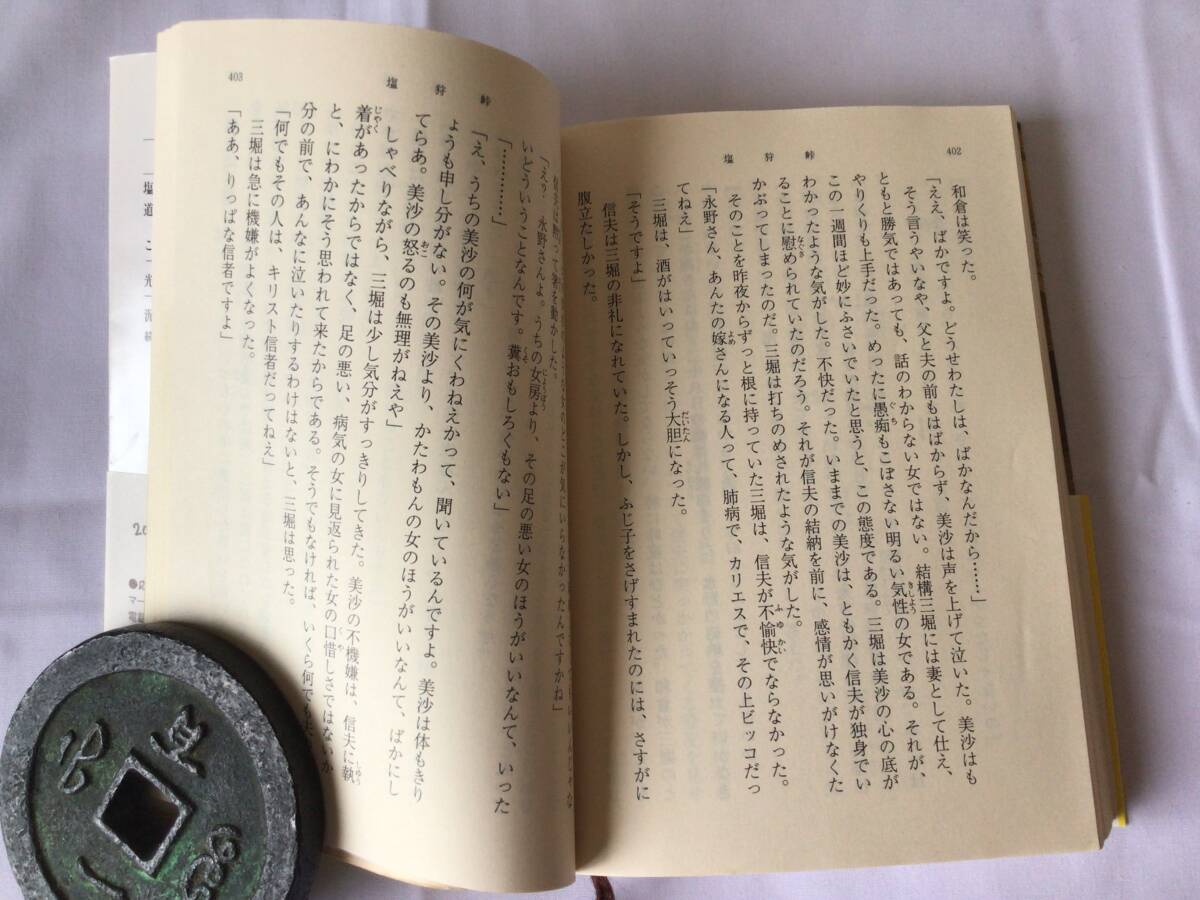 402
塩狩峠
和倉は笑った。
「ええ、ばかですよ。どうせわたしは、ばかなんだから……」
そう言うやいなや、父と夫の前もはばからず、美沙は声を上げて泣いた。美沙はも
ともと勝気ではあっても、話のわからない女ではない。結構三堀には妻として仕え、
やりくりも上手だった。めったに愚痴もこぼさない明るい気性の女である。それが、
この一週間ほど妙にふさいでいたと思うと、この態度である。三堀は美沙の心の底が
わかったような気がした。不快だった。いままでの美沙は、ともかく信夫が独身でい
ることに慰められていたのだろう。それが信夫の結納を前に、感情が思いがけなくた
かぶってしまったのだ。三堀は打ちのめされたような気がした。
そのことを昨夜からずっと根に持っていた三堀は、信夫が不愉快でならなかった。
「永野さん、あんたの嫁さんになる人って、肺病で、カリエスで、その上ビッコだっ
てねえ」
三堀は、酒がはいっていっそう大胆になった。
「そうですよ」
信夫は三堀の非礼になれていた。しかし、ふじ子をさげすまれたのには、さすがに
腹立たしかった。
403
塩狩峠
て箸を動かした。
「えっ、永野さんよ。うちの女房より、その足の悪い女のほうがいいなんて、いった
いどういうことなんです。糞おもしろくもない」
「…………」
「え、うちの美沙の何が気にくわねえかって、聞いているんですよ。美沙は体もきり
ょうも申し分がない。その美沙より、かたわもんの女のほうがいいなんて、ばかにし
てらあ。美沙の怒るのも無理がねえや」
しゃべりながら、三堀は少し気分がすっきりしてきた。美沙の不機嫌は、信夫に執
着があったからではなく、足の悪い、病気の女に見返られた女の口惜しさではないか
と、にわかにそう思われて来たからである。そうでもなければ、いくら何でも夫
分の前で、あんなに泣いたりするわけはないと、三堀は思った。
「何でもその人は、キリスト信者だってねえ」
三堀は急に機嫌がよくなった。
「ああ、りっぱな信者ですよ」